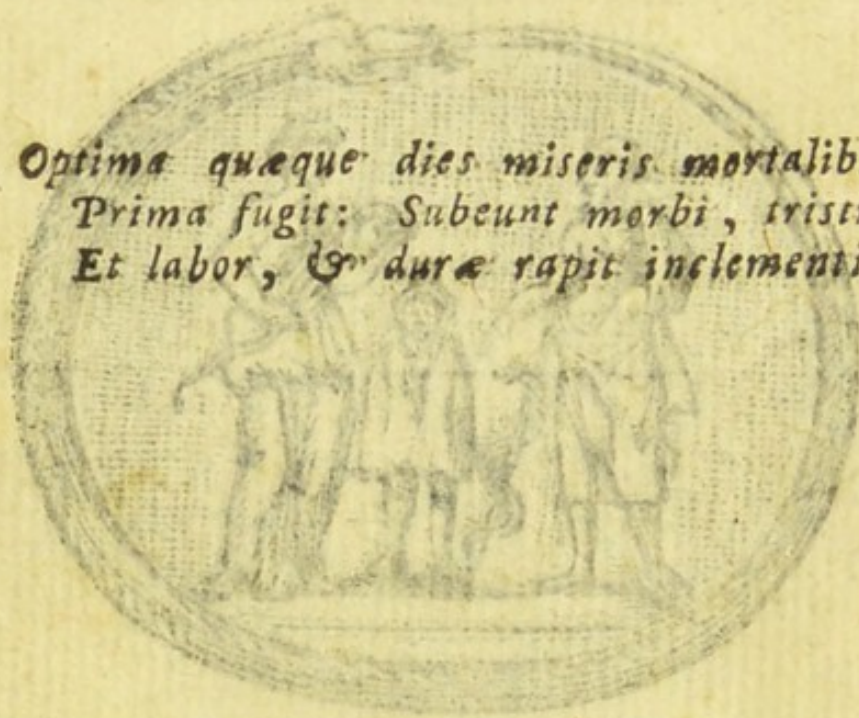 Optima quæque dies miseris mortalib
Prima fugit: Subeunt morbi, trist
Et labor, & duræ rapit inclementi